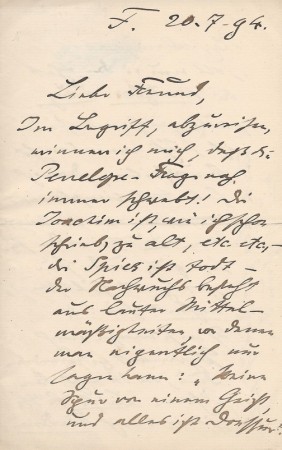 F. 20-7-94.
Lieber Freund,
Im Begriff, abzureisen,
erinnere ich mich, daß die
Penelope-Frage noch
immer schwebt! Die
Joachim ist, wie ich schon
schrieb, zu alt, etc. etc.,
die Spies ist todt -
der Nachwuchs besteht
aus lauter Mittel-
mäßigkeiten, von denen
man eigentlich nur
sagen kann: "Keine
Spur von einem Geist,
und alles ist Dressur!"